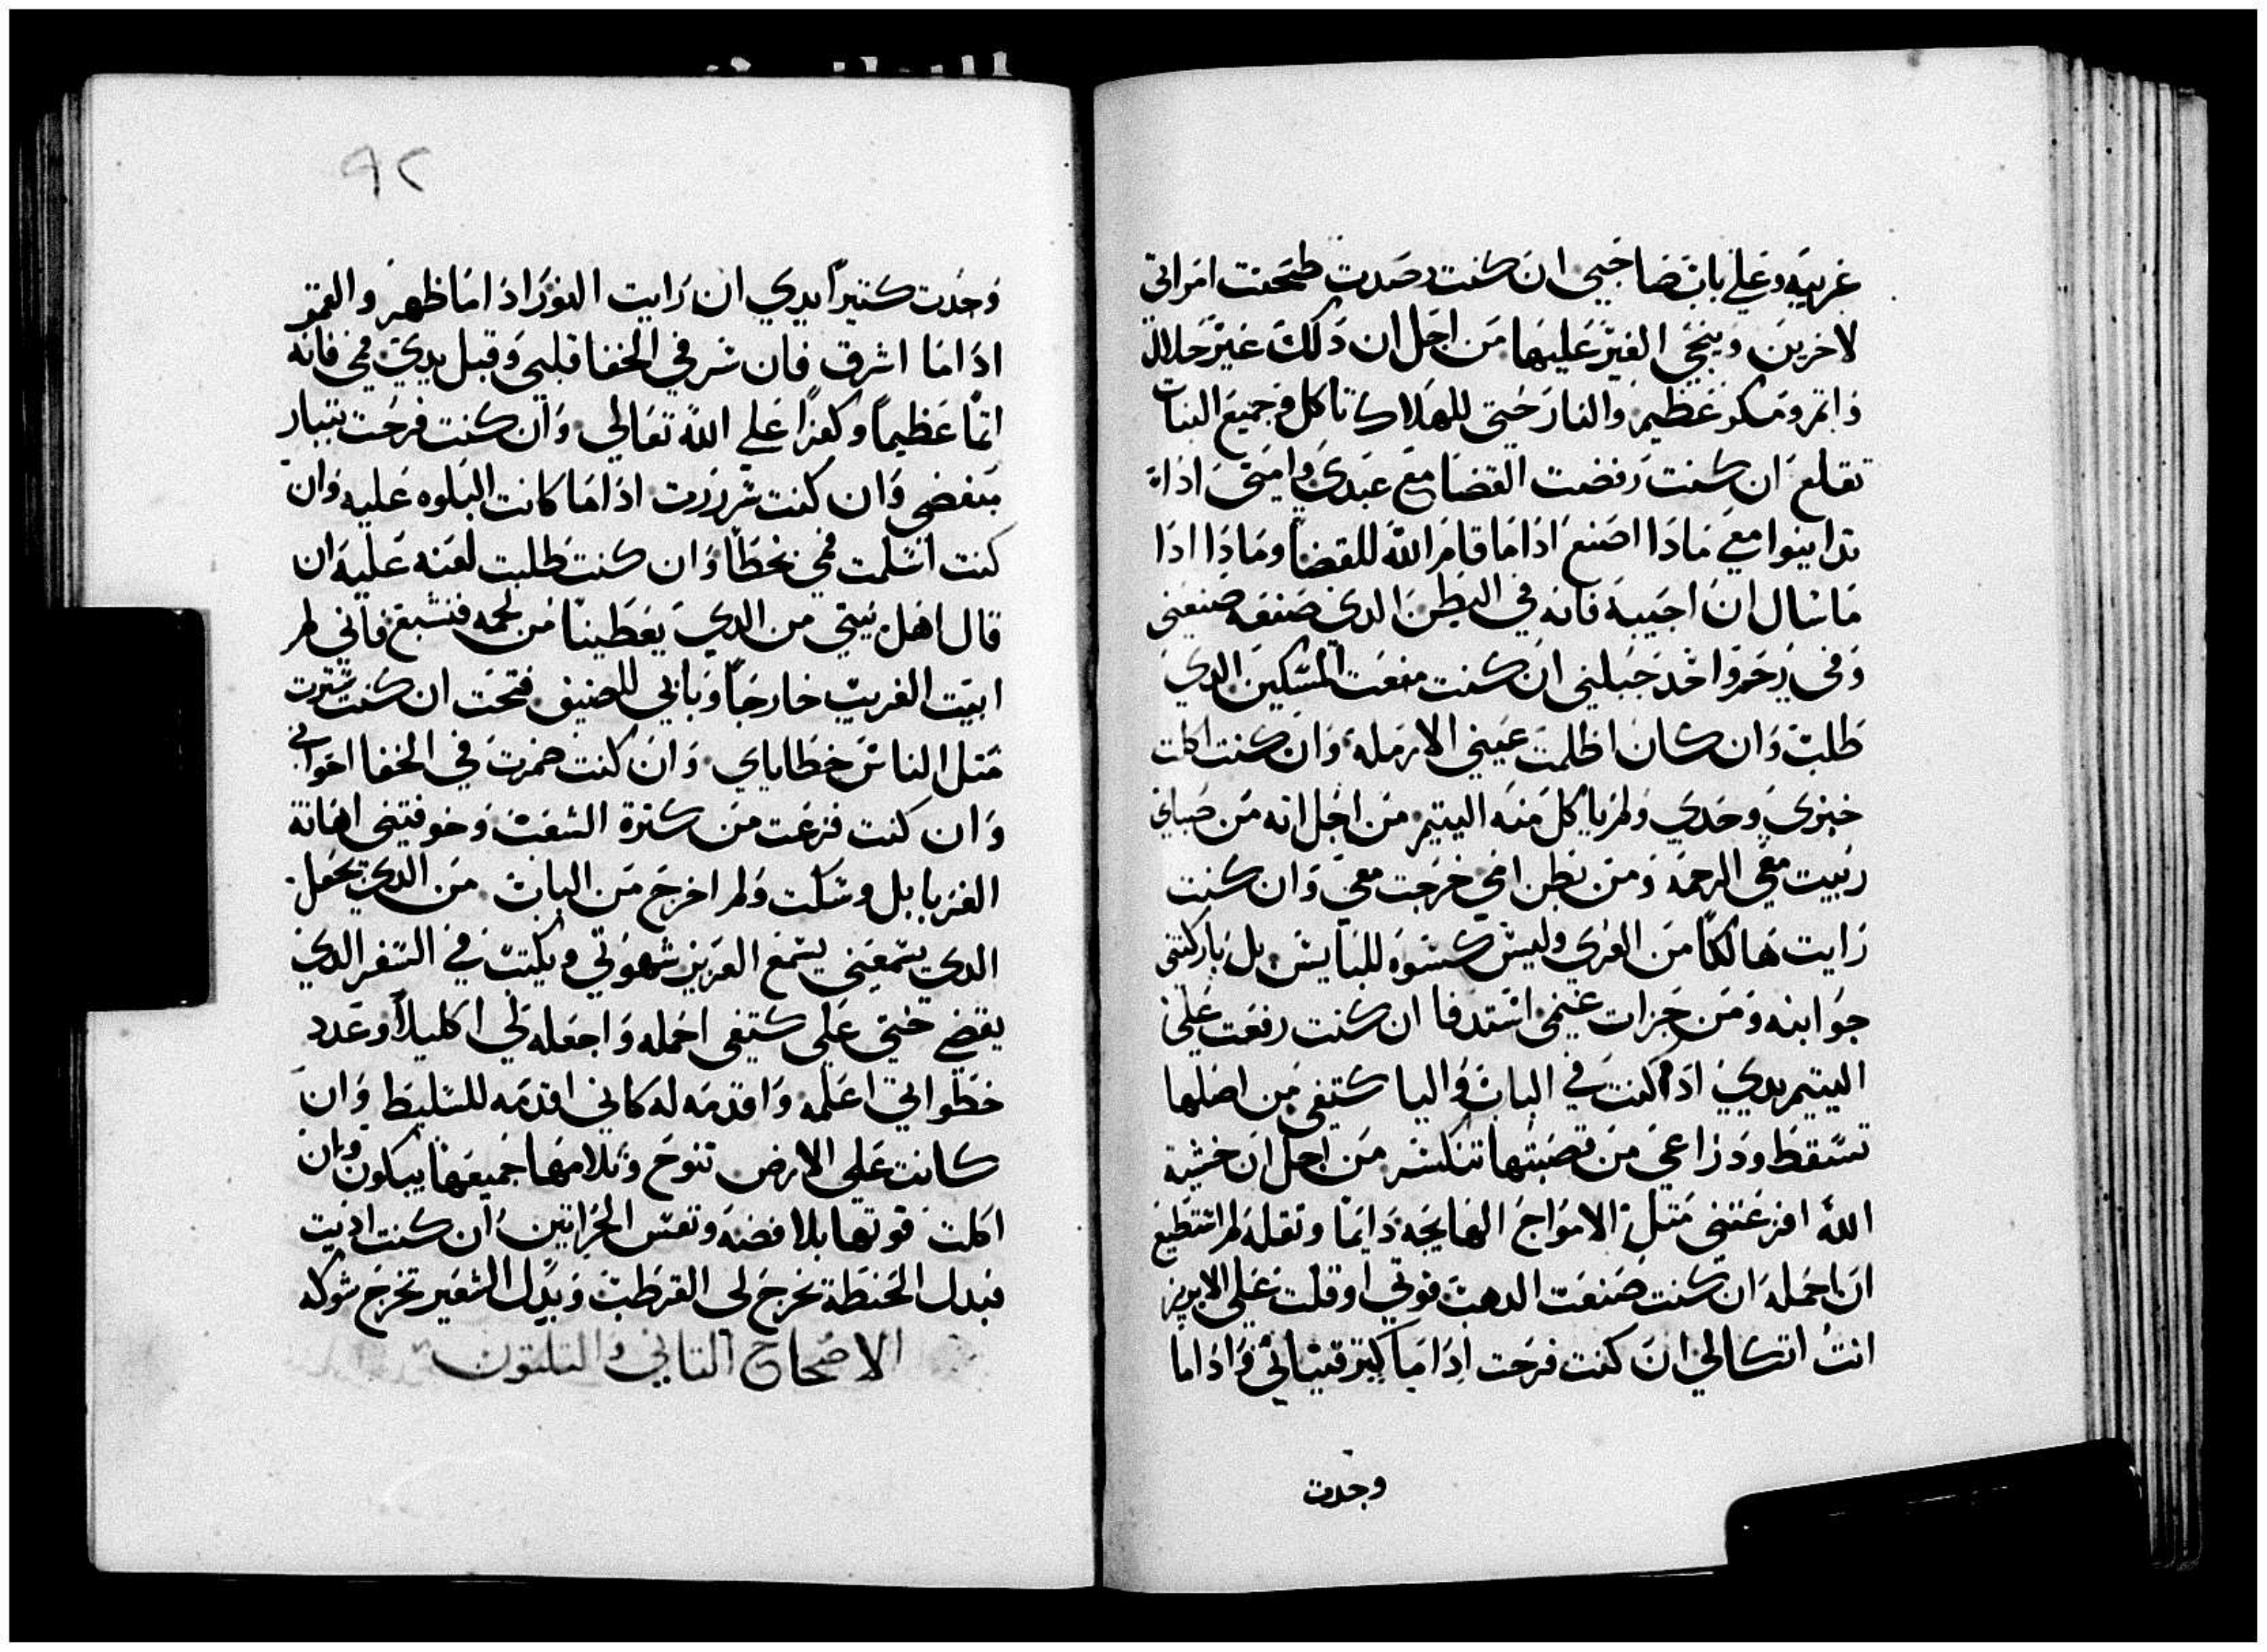 غريبه وعلي باب صاحبي ان كنت رصدت طحنت امراتي
لاخرين وينحي الغير عليها من اجل ان دلك غير حلال
واتم ومنكر عظيم والنار حتي للهلاك تاكل وجميع النبات
تقلع ان كنت رفضت القضا مع عبدي وامتي ادا
تداينوا معي مادا اصنع ادا ما قام الله للقضا ومادا ادا
ما سال ان اجيبه فانه في البطن الدي صنعه صنعني
وفي رحم واحد جبلني ان كنت منعت المسكين الدي
طلب وان كان اظلمت عيني الارمله وان كنت اكلت
خبزي وحدي ولم ياكل منه اليتيم من اجل انه من صباي
ربيت معي الرحمه ومن بطن امي خرجت معي وان كنت
رايت هالكا من العري وليس كسوه للبايس بل باركتني
جوانبه ومن جزات غنمي استدفا ان كنت رفعت علي
اليتيم يدي ادا كنت في الباب واليا كتفي من اصلها
تسقط ودراعي من قصبتها تنكسر من اجل ان خشية
الله افزعتني متل الامواج الهايجه دايما وتقله لم استطيع
ان احمله ان كنت صنعت الدهب قوتي او قلت علي الابريز
انت اتكالي ان كنت فرحت ادا ما كتر قنياني وادا ما
وجدت
٩٢
وجدت كتيرا يدي ان رايت النور ادا ما ظهر والقمر
ادا ما اشرق فان سر في الخفا قلبي وقبل يدي فمي فانه
اتما عظيما وكفرا علي الله تعالي وان كنت فرحت بتبار
مبغضي وان كنت سررت ادا ما كانت البلوه عليه وان
كنت اسلمت فمي بخطا وان كنت طلبت لعنه عليه ان
قال اهل بيتي من الدي يعطينا من لحمه فنشبع فاني لم
ابيت الغريب خارجا وبابي للضيف فتحت ان كنت سترت
متل الناس خطاياي وان كنت ضمرت في الخفا اخواني
وان كنت فزعت من كترة الشعب وخوفتني اهانة
الغربا بل وسكت ولم اخرج من الباب من الدي يجعل
الدي يسمعني يسمع العزيز شهوتي ويكتب في السفر الدي
يقضي حتي علي كتفي احمله واجعله لي اكليلا وعدد
خطواتي اعلمه واقدمه له كاني اقدمه للسليط وان
كانت علي الارض تنوح وتلامها جميعها يبكون وان
اكلت قوتها بلا فضه وتعس الحراتين ان كنت اديت
فبدل الحنطة تخرج لي القرطب وبدل الشعير تخرج شوكه
الاصحاح التاني والتلتون